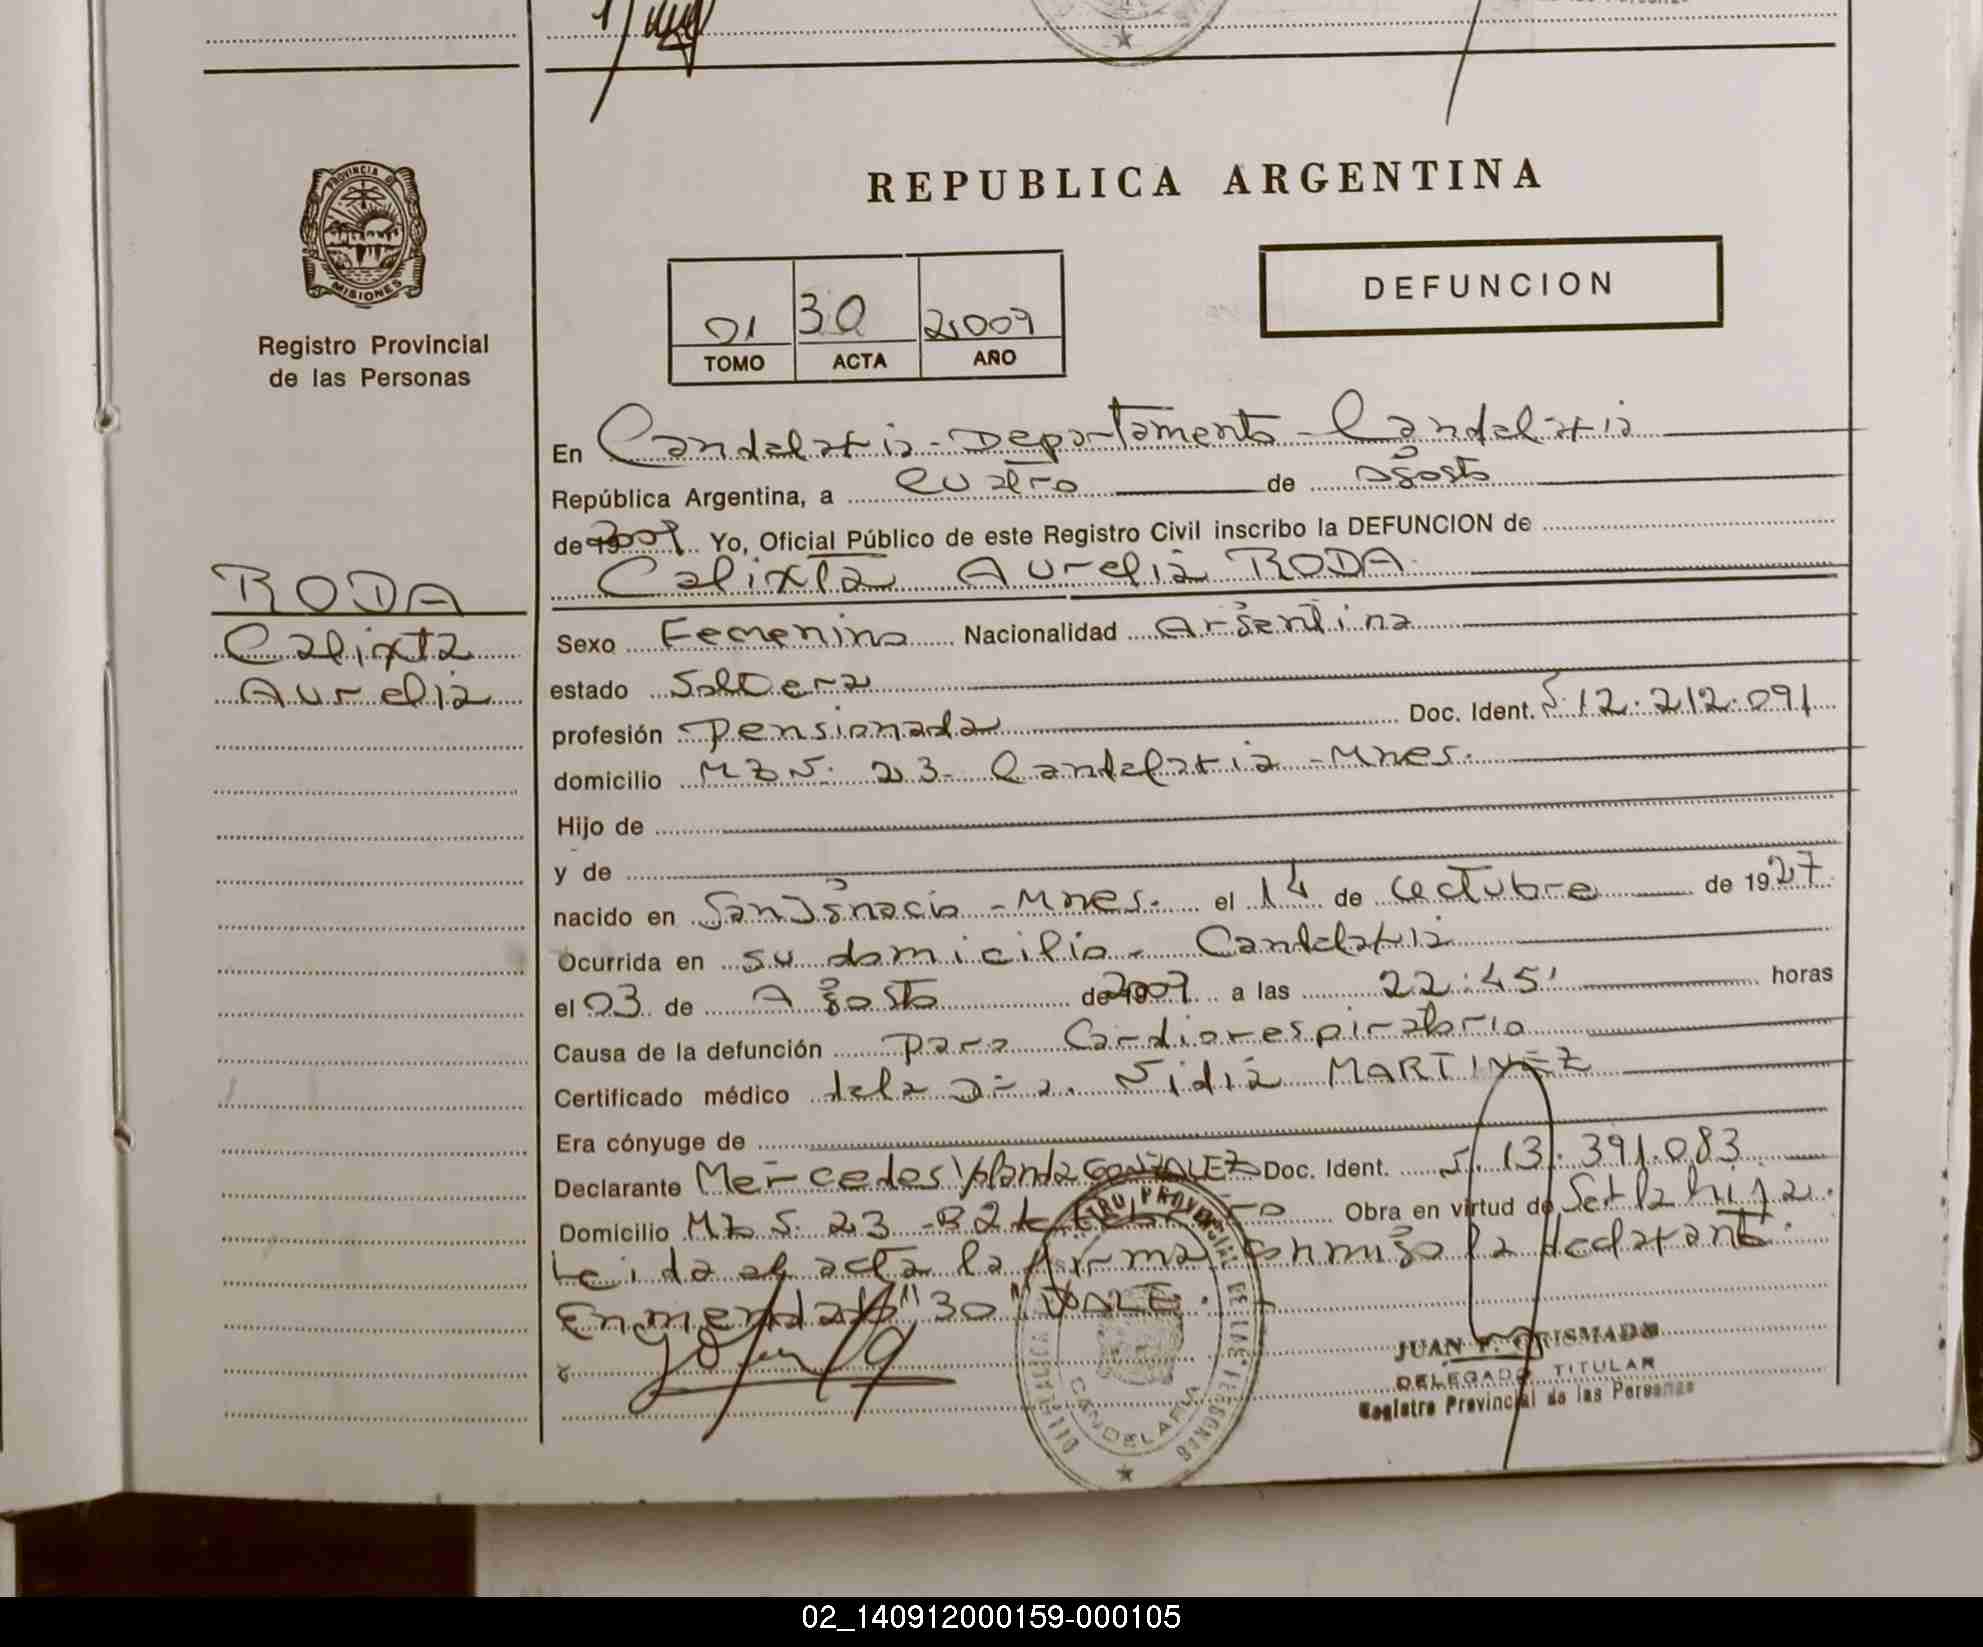 REPUBLICA ARGENTINA
PROVINCIA DE
MISIONES
Registro Provincial
de las Personas
DEFUNCION
01 30 2009
TOMO ACTA AÑO
En Candelaria - Departamento - Candelaria
República Argentina, a cuatro de Agosto
de 2009 Yo, Oficial Público de este Registro Civil inscribo la DEFUNCION de
Calixta Aurelia RODA
RODA
Calixta
Aurelia
Sexo Femenino Nacionalidad Argentina
estado Soltera
profesión Pensionada Doc. Ident. 12.212.091
domicilio MZ S. 23 - Candelaria - Mnes.
Hijo de
y de
nacido en San Ignacio - Mnes. el 14 de Octubre de 1927
Ocurrida en su domicilio - Candelaria
el 03 de Agosto de 2009 a las 22:45' horas
Causa de la defunción Paro Cardiorespiratorio
Certificado médico de la Dra. Nidia MARTINEZ
Era cónyuge de
Declarante Mercedes Yolanda GONZALEZ Doc. Ident. 13.391.083
Domicilio MZ S. 23 - Obra en virtud de Ser la hija.
Leida el acta la firma conmigo la declarante.
Enmendado "30" VALE.
CANDELARIA
JUAN
DELEGADO TITULAR
Registro Provincial de las Personas
02_140912000159-000105